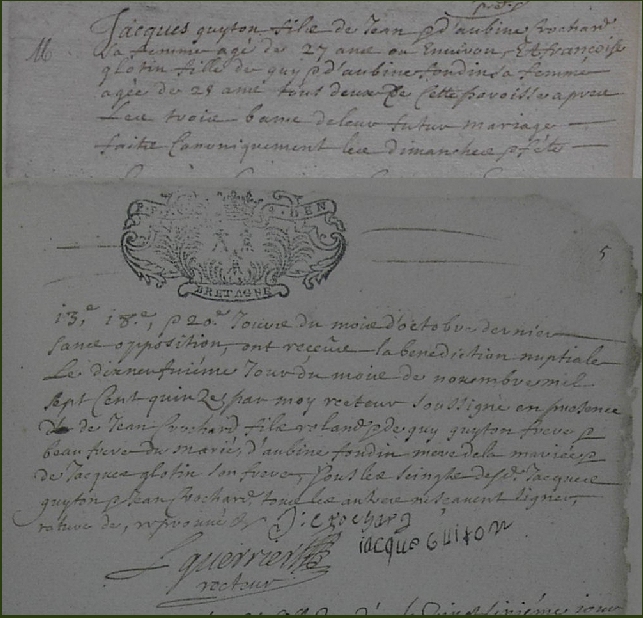 M
Jacques guyton fils de Jean et d'aubine Crochard
sa femme agé de 27 ans ou Environ, Et françoise
glotin fille de guy et d'aubine fondin sa femme
agée de 28 ans tous deux de Cette paroisse apres
Les trois bans de leur futur mariage
faits Canoniquement les dimanches et fête
BRETAGNE
5
13.e 18.e, et 20.e Jours du mois d'octobre dernier
sans opposition, ont receüe la benediction nuptiale
Le dixneufuiéme Jour du mois de novembre mil
sept Cent quinze, par moy recteur soussigné en presence
de Jean Crochard fils roland et de guy guyton frere et
beau frere du marié, d'aubine fondin mere de la mariée et
de Jacques glotin son frere, sous les seings desd. Jacques
guyton et Jean Crochard tous les autres ne scavent signer,
rature de, reprouvée
J Crochard
jacque Guiton
L guerrier
recteur